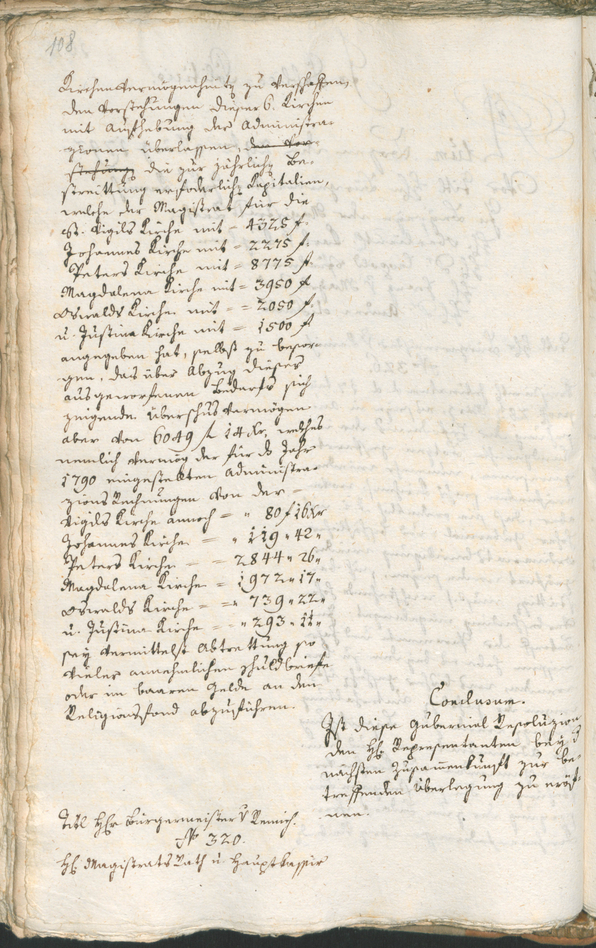 108
Kirchenvermögenheits zu verschaffen,
den Vorstehungen dieser 6. Kirchen
mit Aufhebung der Administra-
zionen überlassen, den Vor-
stehung, die zur jährlich. Be-
streittung erforderlich. Kapitalien,
welche der Magistrat für die
St. Vigils Kirche mit = 4325 f.
Johannes Kirche mit = 2275 f.
Peters Kirche mit = 8775 f.
Magdalena Kirche mit = 3950 f
Oswalds Kirche mit = = 2050 f
u. Justina Kirche mit = 1500 f
angegeben hat, selbst zu besor-
gen, das über Abzug dieses
ausgeworfenen Bedarfs sich
zeigende Überschus Vermögen
aber von 6049 f 14 Kr, welches
nemlich vermög der für ds Jahr
1790 eingestellten Administra-
zions Rechnungen von der =
Vigils Kirche annoch = " 80 f 16 Kr
Johannes Kirche = " 119 " 42 "
Peters Kirche = = 2844 " 26 "
Magdalena Kirche = 1972 " 17 "
Oswalds Kirche = = " 739 " 22 "
u. Justina Kirche = " 293 " 11 "
sey vermittelst Abtrettung so
vieler annehmlichen Schuldbriefe
oder im baaren Gelde an den
Religionsfond abzuführen.
Conclusum.
Ist diese Gubernial Resoluzion
den HH Representanten bey d
nächsten Zusammenkunft zur be-
treffenden Überlegung zu eröf-
nen.
Titl HHr Bürgermeister v Remich
N 320.
HH Magistrats Rath u Hauptkassier